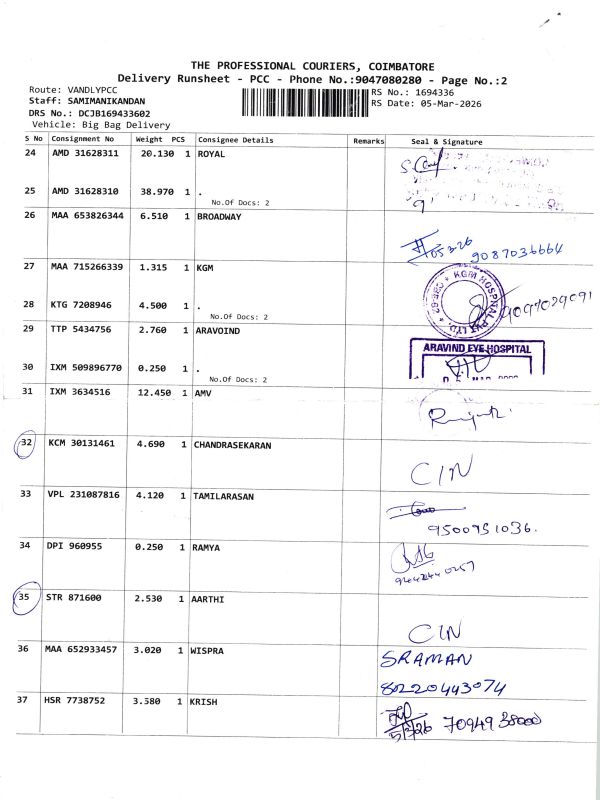 THE PROFESSIONAL COURIERS, COIMBATORE
Delivery Runsheet - PCC - Phone No.:9047080280 - Page No.:2
Route: VANDLYPCC
RS No.: 1694336
Staff: SAMIMANIKANDAN
RS Date: 05-Mar-2026
DRS No.: DCJB169433602
Vehicle: Big Bag Delivery
S No Consignment No Weight PCS Consignee Details Remarks Seal & Signature
24 AMD 31628311 20.130 1 ROYAL
25 AMD 31628310 38.970 1 .
No.Of Docs: 2
26 MAA 653826344 6.510 1 BROADWAY
05-3-26 9087036664
27 MAA 715266339 1.315 1 KGM
KGM HOSPITAL PVT LTD.
28 KTG 7208946 4.500 1 .
9097029091
No.Of Docs: 2
29 TTP 5434756 2.760 1 ARAVOIND
ARAVIND EYE HOSPITAL
30 IXM 509896770 0.250 1 .
No.Of Docs: 2
31 IXM 3634516 12.450 1 AMV
32 KCM 30131461 4.690 1 CHANDRASEKARAN
CIN
33 VPL 231087816 4.120 1 TAMILARASAN
9500951036.
34 DPI 960955 0.250 1 RAMYA
35 STR 871600 2.530 1 AARTHI
CIN
36 MAA 652933457 3.020 1 WISPRA
SRAMAN
8220443074
37 HSR 7738752 3.580 1 KRISH
5/3/26